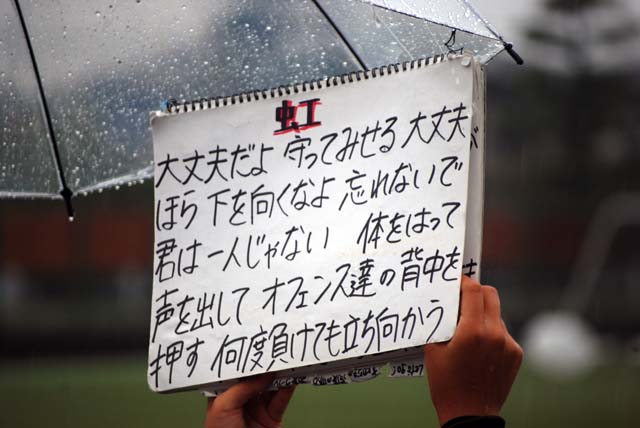 虹
大丈夫だよ 守ってみせる 大丈夫
ほら 下を向くなよ 忘れないで
君は一人じゃない 体をはって
声を出して オフェンス達の背中を
押す 何度負けても立ち向かう